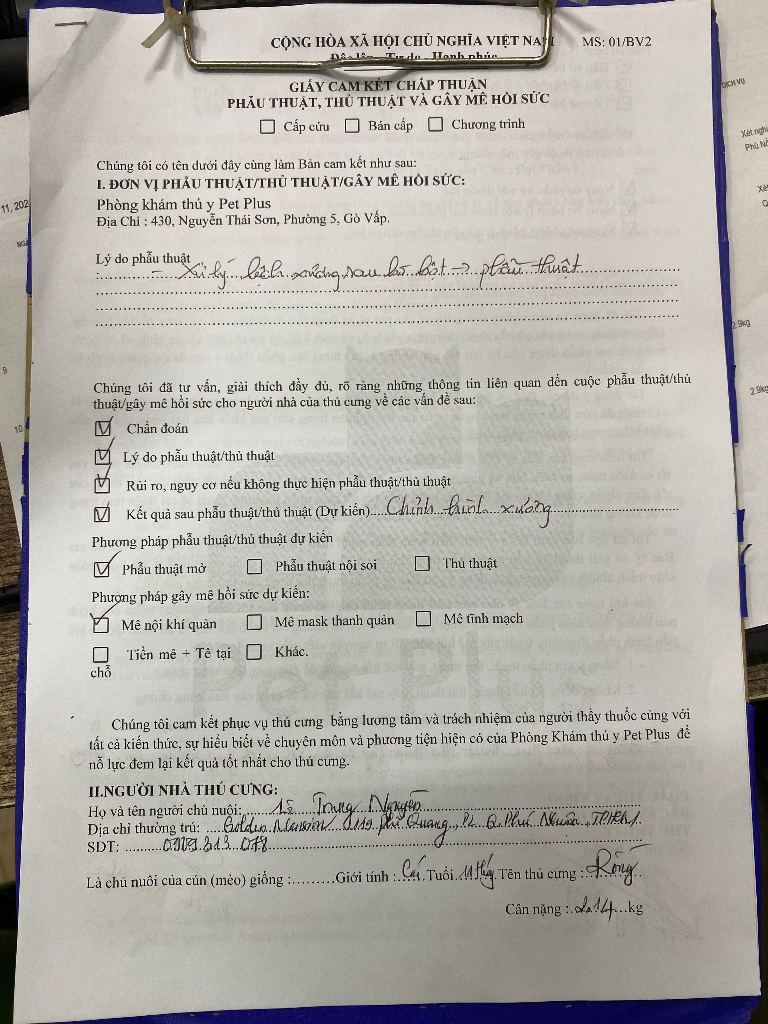 CỘNG HÒA XÃ HỘI CHỦ NGHĨA VIỆT NAM MS: 01/BV2
Độc lập - Tự do - Hạnh phúc
GIẤY CAM KẾT CHẤP THUẬN
PHẪU THUẬT, THỦ THUẬT VÀ GÂY MÊ HỒI SỨC
☐ Cấp cứu ☐ Bán cấp ☐ Chương trình
Chúng tôi có tên dưới đây cùng làm Bản cam kết như sau:
I. ĐƠN VỊ PHẪU THUẬT/THỦ THUẬT/GÂY MÊ HỒI SỨC:
Phòng khám thú y Pet Plus
Địa Chỉ : 430, Nguyễn Thái Sơn, Phường 5, Gò Vấp.
Lý do phẫu thuật
: – Xử lý lệch xương sau bó bột → phẫu thuật
Chúng tôi đã tư vấn, giải thích đầy đủ, rõ ràng những thông tin liên quan đến cuộc phẫu thuật/thủ
thuật/gây mê hồi sức cho người nhà của thú cưng về các vấn đề sau:
☑ Chẩn đoán
☑ Lý do phẫu thuật/thủ thuật
☑ Rủi ro, nguy cơ nếu không thực hiện phẫu thuật/thủ thuật
☑ Kết quả sau phẫu thuật/thủ thuật (Dự kiến)....Chỉnh hình xương
Phương pháp phẫu thuật/thủ thuật dự kiến
☑ Phẫu thuật mở ☐ Phẫu thuật nội soi ☐ Thủ thuật
Phương pháp gây mê hồi sức dự kiến:
☑ Mê nội khí quản ☐ Mê mask thanh quản ☐ Mê tĩnh mạch
☐ Tiền mê + Tê tại ☐ Khác.
chỗ
Chúng tôi cam kết phục vụ thú cưng bằng lương tâm và trách nhiệm của người thầy thuốc cùng với
tất cả kiến thức, sự hiểu biết về chuyên môn và phương tiện hiện có của Phòng Khám thú y Pet Plus để
nỗ lực đem lại kết quả tốt nhất cho thú cưng.
II.NGƯỜI NHÀ THÚ CƯNG:
Họ và tên người chủ nuôi: Lê Trung Nguyên
Địa chỉ thường trú: Golden Mansion 119 Phổ Quang, Q. Phú Nhuận, TPHCM
SDT: 313 078
Là chủ nuôi của cún (mèo) giống :.........Giới tính : Cái Tuổi Tên thú cưng : Rồng
Cân nặng : 2.14 kg